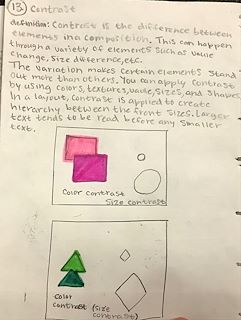 13) Contrast
definition: Contrast is the difference between
elements in a composition. This can happen
through a variety of elements such as value
change, size difference, etc.
The variation makes certain elements stand
out more than others. You can apply contrast
by using colors, textures, value, sizes, and shapes.
In a layout, contrast is applied to create
hierarchy between the front sizes. Larger
text tends to be read before any smaller
text.
Color contrast
Size contrast
color
contrast
(size
contrast)